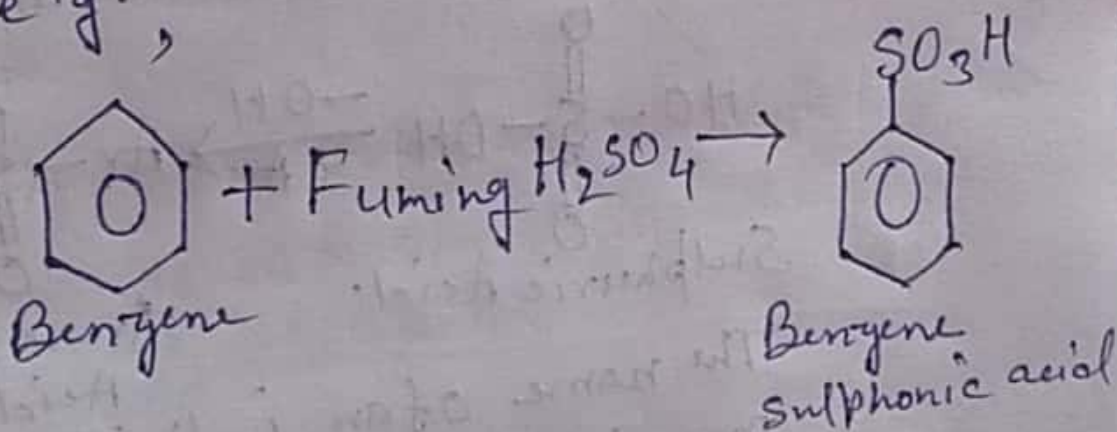 e g. ,
SO₃H
+ Fuming H₂SO₄ →
Benzene
Benzene
sulphonic acid